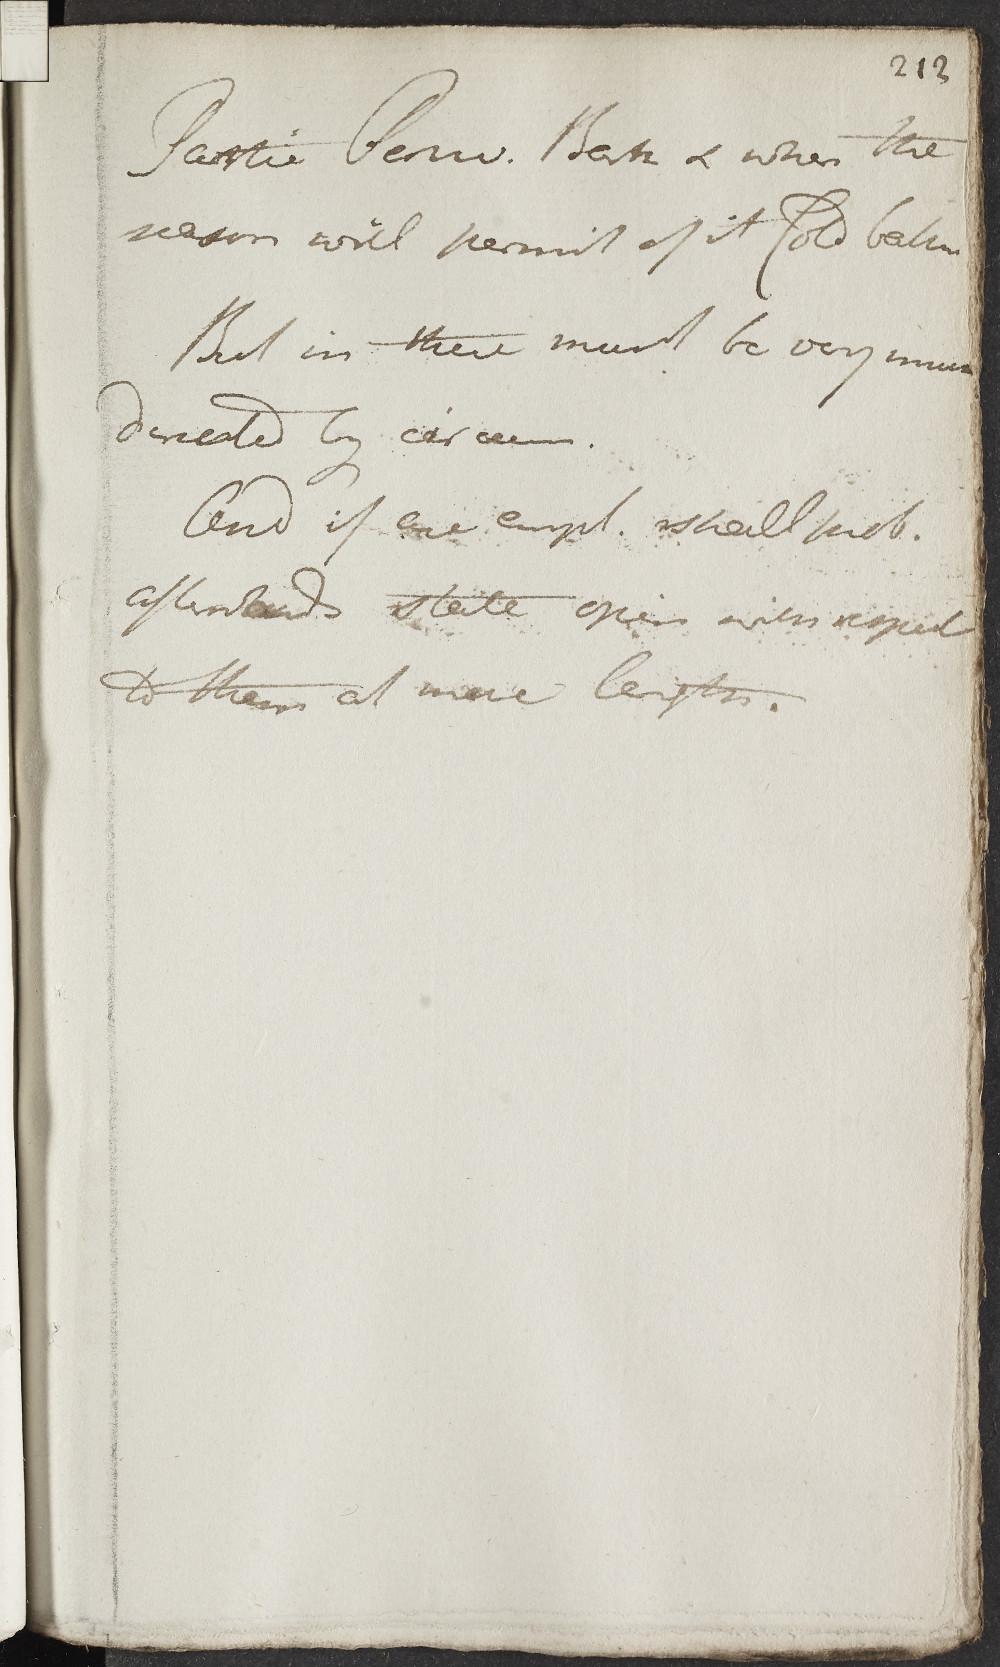 213
Peruv. Bark & when the
season will permit of it Cold bathn
But in these must be very much
directed by circum.
And if are empl. shall prob.
afterwards state opin with respect
to them at more length.